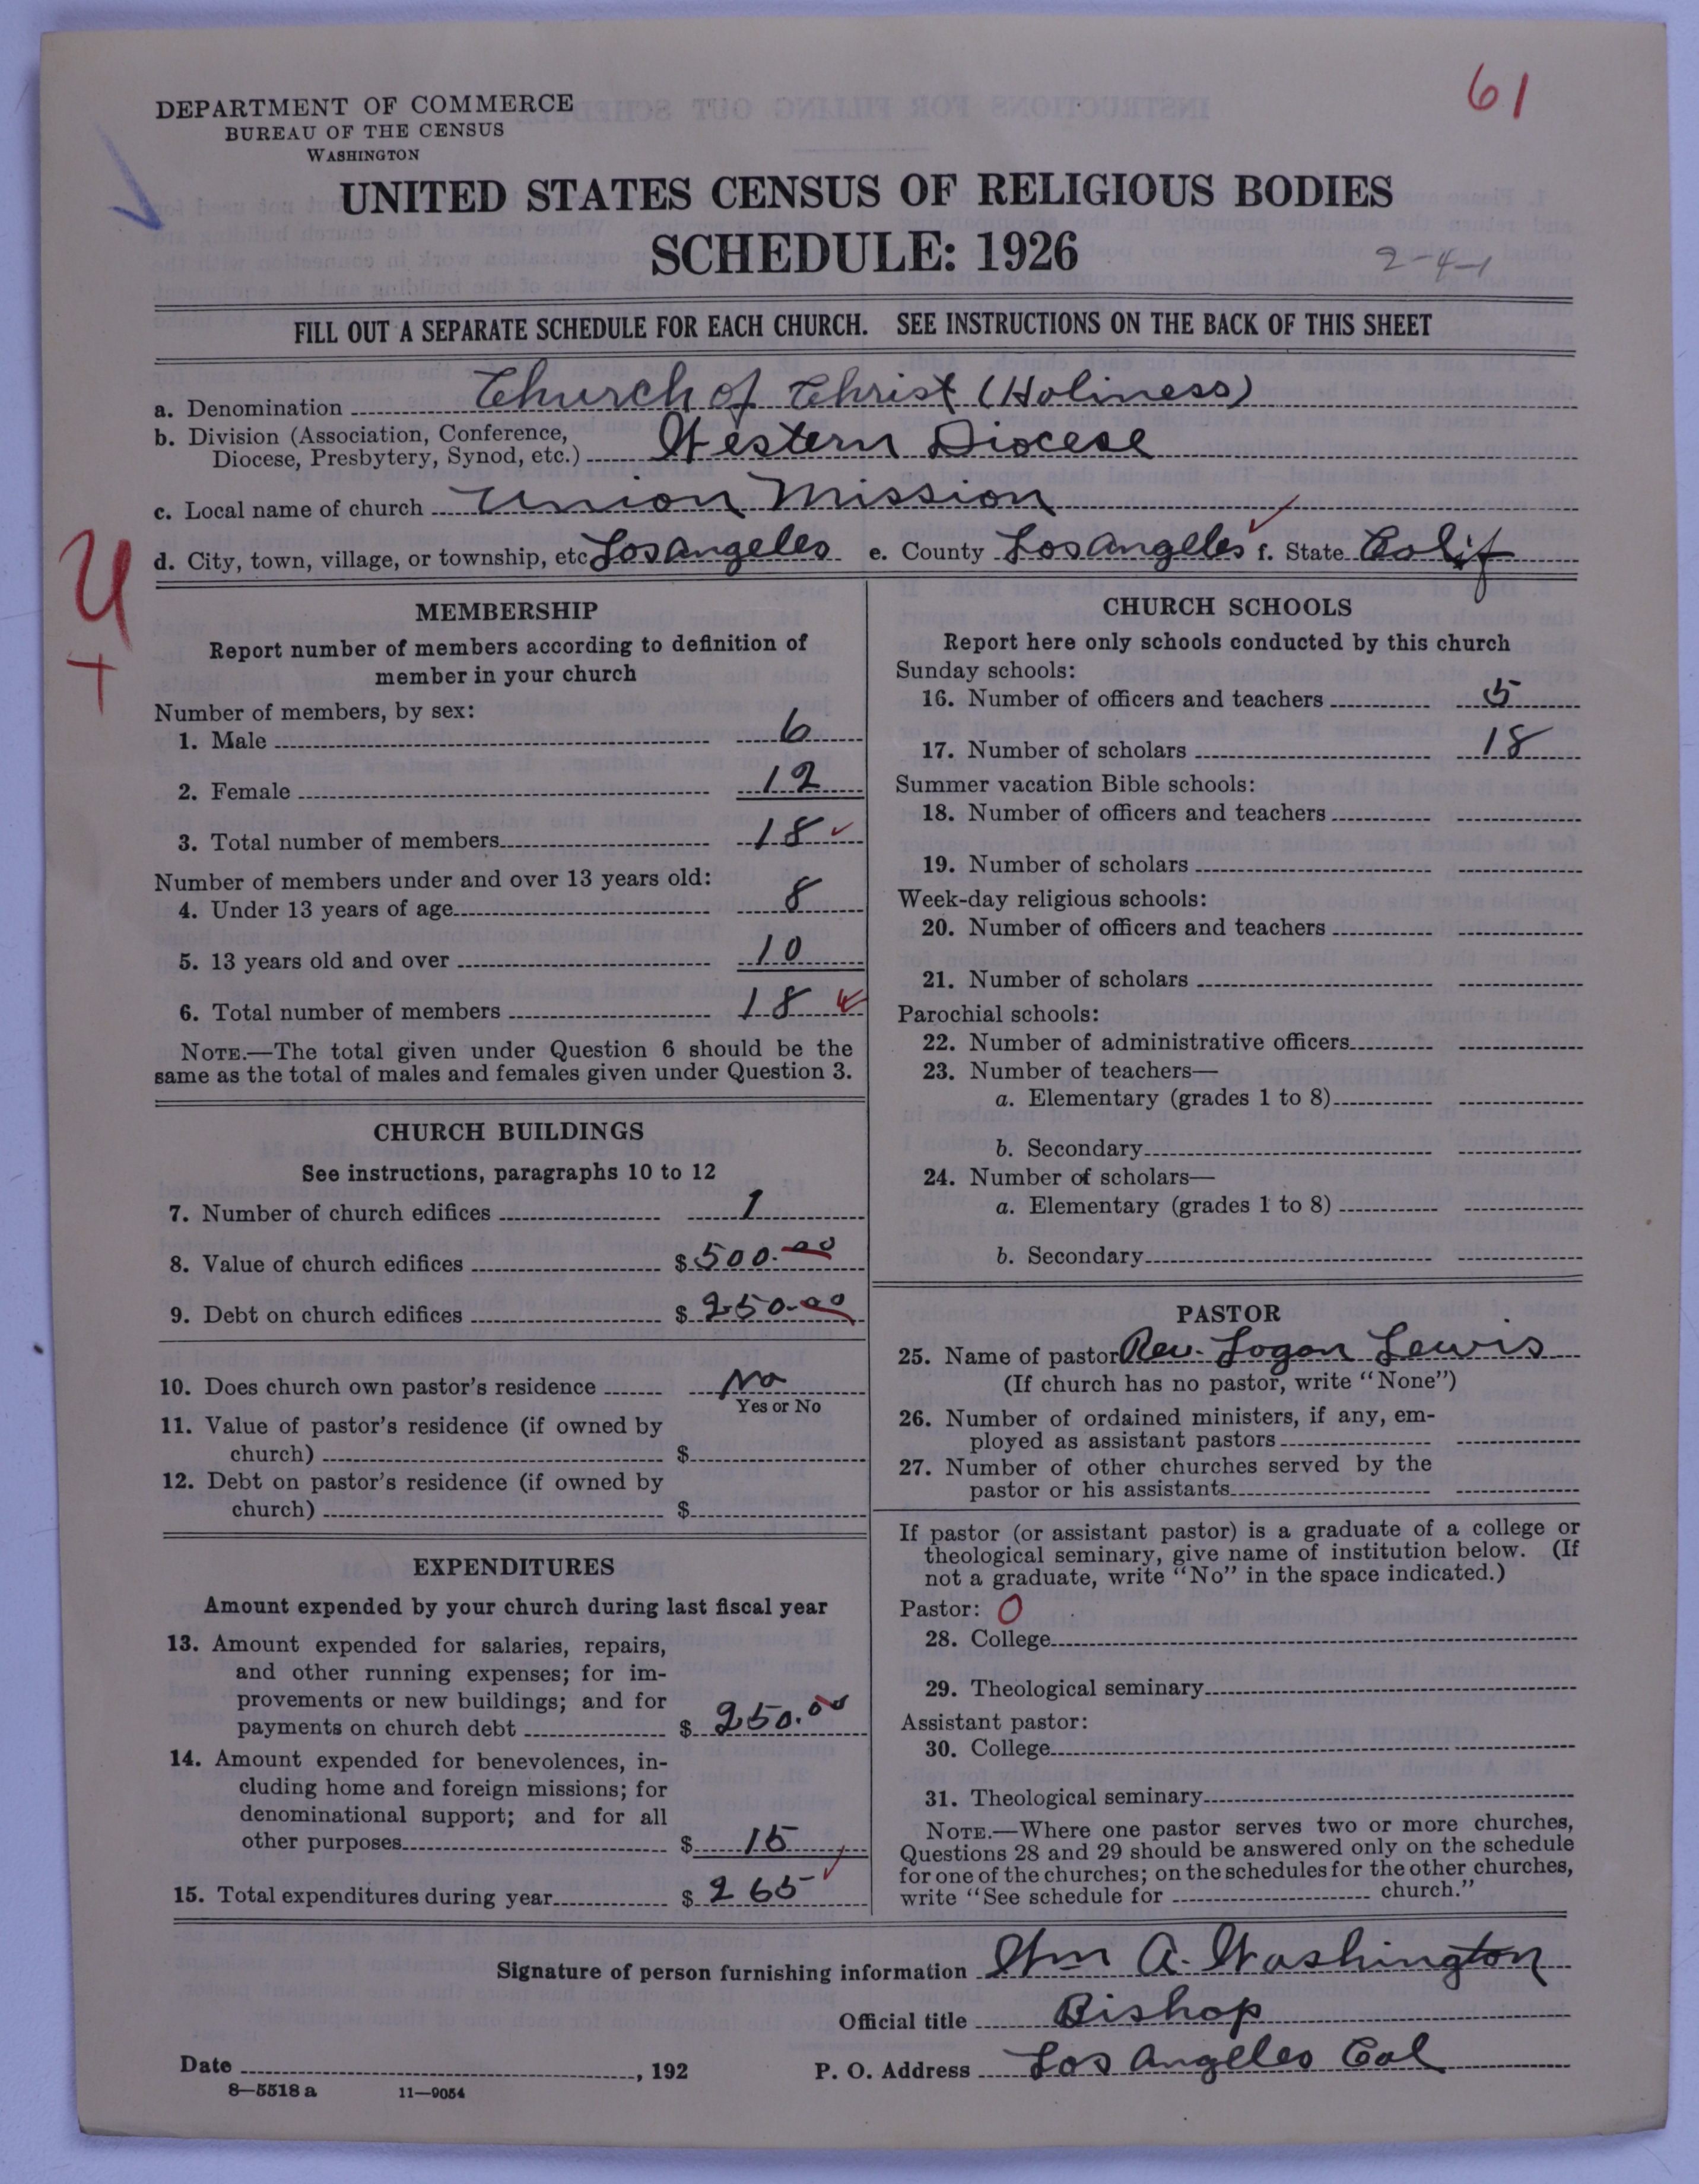 61
DEPARTMENT OF COMMERCE
BUREAU OF THE CENSUS
WASHINGTON
UNITED STATES CENSUS OF RELIGIOUS BODIES
SCHEDULE: 1926
2-4-1
FILL OUT A SEPARATE SCHEDULE FOR EACH CHURCH. SEE INSTRUCTIONS ON THE BACK OF THIS SHEET
a. Denomination Church of Christ (Holiness)
b. Division (Association, Conference,
Diocese, Presbytery, Synod, etc.) Western Diocese
c. Local name of church Union Mission
d. City, town, village, or township, etc Los Angeles e. County Los Angeles f. State Calif
U
+
MEMBERSHIP
Report number of members according to definition of
member in your church
Number of members, by sex:
1. Male 6
2. Female 12
3. Total number of members 18
Number of members under and over 13 years old:
4. Under 13 years of age 8
5. 13 years old and over 10
6. Total number of members 18
NOTE.—The total given under Question 6 should be the
same as the total of males and females given under Question 3.
CHURCH BUILDINGS
See instructions, paragraphs 10 to 12
7. Number of church edifices 1
8. Value of church edifices $ 500.00
9. Debt on church edifices $ 250.00
10. Does church own pastor's residence No
Yes or No
11. Value of pastor's residence (if owned by
church) $
12. Debt on pastor's residence (if owned by
church) $
EXPENDITURES
Amount expended by your church during last fiscal year
13. Amount expended for salaries, repairs,
and other running expenses; for im-
provements or new buildings; and for
payments on church debt $ 250.00
14. Amount expended for benevolences, in-
cluding home and foreign missions; for
denominational support; and for all
other purposes $ 15
15. Total expenditures during year $ 265
CHURCH SCHOOLS
Report here only schools conducted by this church
Sunday schools:
16. Number of officers and teachers 5
17. Number of scholars 18
Summer vacation Bible schools:
18. Number of officers and teachers
19. Number of scholars
Week-day religious schools:
20. Number of officers and teachers
21. Number of scholars
Parochial schools:
22. Number of administrative officers
23. Number of teachers—
a. Elementary (grades 1 to 8)
b. Secondary
24. Number of scholars—
a. Elementary (grades 1 to 8)
b. Secondary
PASTOR
25. Name of pastor Rev. Logan Lewis
(If church has no pastor, write "None")
26. Number of ordained ministers, if any, em-
ployed as assistant pastors
27. Number of other churches served by the
pastor or his assistants
If pastor (or assistant pastor) is a graduate of a college or
theological seminary, give name of institution below. (If
not a graduate, write "No" in the space indicated.)
Pastor: 0
28. College
29. Theological seminary
Assistant pastor:
30. College
31. Theological seminary
NOTE.—Where one pastor serves two or more churches,
Questions 28 and 29 should be answered only on the schedule
for one of the churches; on the schedules for the other churches,
write "See schedule for church."
Signature of person furnishing information Wm A. Washington
Official title Bishop
Date , 192 P. O. Address Los Angeles Cal
8—5518 a 11—9054